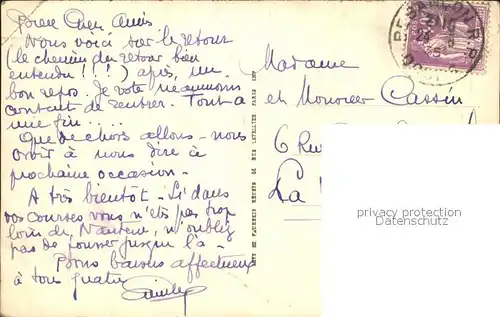 Bien Chers Amis
Nous voici sur le retour
(le chemin du retour bien
entendu !!!) après un
bon repos. Je suis néanmoins
content de rentrer. Tout a
une fin....
Que de choses allons-nous
avoir à nous dire à
prochaine occasion.
A très bientôt - Si dans
vos courses vous n'êtes pas trop
loin de Nanterre, n'oubliez
pas de pousser jusque là -
Bons baisers affectueux
à tous quatre
Madame
et Monsieur Cassin
6 Rue
La
privacy protection
Datenschutz